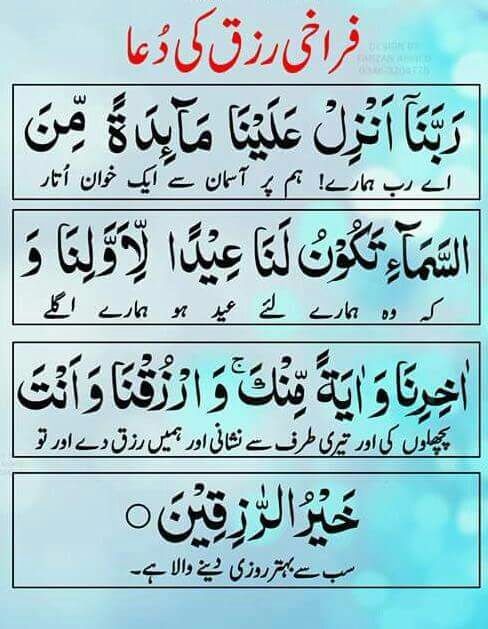 فراخی رزق کی دُعا
DESIGN BY
FAIZAN AHMED
رَبَّنَاۤ اَنْزِلْ عَلَیْنَا مَآئِدَةً مِّنَ
اے رب ہمارے! ہم پر آسمان سے ایک خوان اُتار
السَّمَآءِ تَكُوْنُ لَنَا عِیْدًا لِّاَوَّلِنَا وَ
کہ وہ ہمارے لئے عید ہو ہمارے اگلے
اٰخِرِنَا وَ اٰیَةً مِّنْكَ ۚ وَ ارْزُقْنَا وَ اَنْتَ
پچھلوں کی اور تیری طرف سے نشانی اور ہمیں رزق دے اور تو
خَیْرُ الرّٰزِقِیْنَ ○
سب سے بہتر روزی دینے والا ہے۔